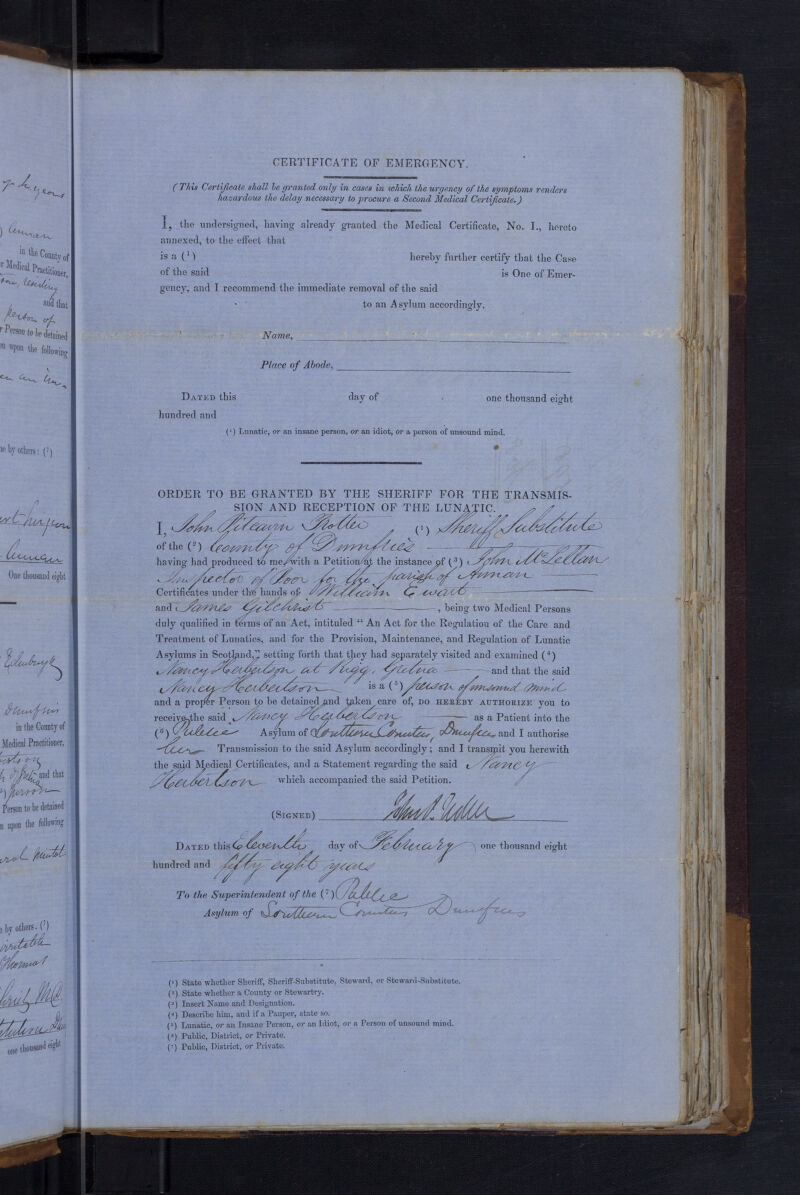 of
in the County of
r Medical Practitioner,
and that
person of
r Person to be detained
n upon the following
ne by others: (⁷)
Annan
One thousand eight
Edinburgh
Dumfries
in the County of
Medical Practitioner,
and that
person
Person to be detained
n upon the following
mental
e by others. (⁷)
one thousand eight
CERTIFICATE OF EMERGENCY.
(This Certificate shall be granted only in cases in which the urgency of the symptoms renders
hazardous the delay necessary to procure a Second Medical Certificate.)
I, the undersigned, having already granted the Medical Certificate, No. I., hereto
annexed, to the effect that
is a (¹) hereby further certify that the Case
of the said is One of Emer-
gency, and I recommend the immediate removal of the said
to an Asylum accordingly.
Name,
Place of Abode,
DATED this day of one thousand eight
hundred and
(¹) Lunatic, or an insane person, or an idiot, or a person of unsound mind.
ORDER TO BE GRANTED BY THE SHERIFF FOR THE TRANSMIS-
SION AND RECEPTION OF THE LUNATIC.
I, John Pitcairn Trotter (¹) Sheriff Substitute
of the (²) County of Dumfries
having had produced to me, with a Petition at the instance of (³) John McLellan
Inspector of Poor for the parish of Annan
Certificates under the hands of William Ewart
and James Gilchrist, being two Medical Persons
duly qualified in terms of an Act, intituled “ An Act for the Regulation of the Care and
Treatment of Lunatics, and for the Provision, Maintenance, and Regulation of Lunatic
Asylums in Scotland,” setting forth that they had separately visited and examined (⁴)
Nancy Herbertson at Rigg, Gretna and that the said
Nancy Herbertson is a (⁵) person of unsound mind
and a proper Person to be detained and taken care of, DO HEREBY AUTHORIZE you to
receive the said Nancy Herbertson as a Patient into the
(⁶) Public Asylum of Southern Counties, Dumfries and I authorise
her Transmission to the said Asylum accordingly; and I transmit you herewith
the said Medical Certificates, and a Statement regarding the said Nancy
Herbertson which accompanied the said Petition.
(SIGNED) John P. Trotter
DATED this Eleventh day of February one thousand eight
hundred and fifty eight years
To the Superintendent of the (⁷) Public
Asylum of Southern Counties Dumfries
(¹) State whether Sheriff, Sheriff-Substitute, Steward, or Steward-Substitute.
(²) State whether a County or Stewartry.
(³) Insert Name and Designation.
(⁴) Describe him, and if a Pauper, state so.
(⁵) Lunatic, or an Insane Person, or an Idiot, or a Person of unsound mind.
(⁶) Public, District, or Private.
(⁷) Public, District, or Private.